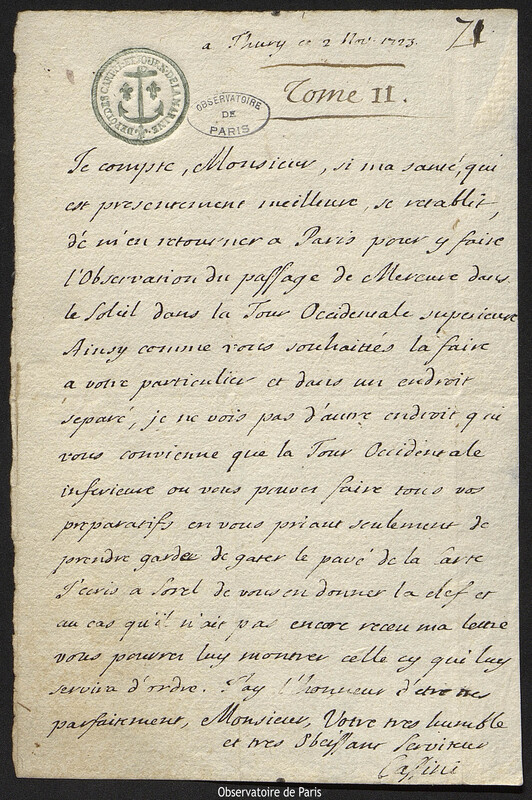 a Thury ce 2 Nov. 1723.
71
Tome II.
DEPOT DES CARTES ET JOUX DE LA MARINE
OBSERVATOIRE
DE
PARIS
Je compte, Monsieur, si ma santé, qui
est presentement meilleure, se retablit,
dé m'en retourner a Paris pour y faire
l'Observation du passage de Mercure dans
le Soleil dans la Tour Occidentale superieure
Ainsy comme vous souhaittés la faire
a votre particulier et dans un endroit
separé, je ne vois pas d'autre endroit qui
vous convienne que la Tour Occidentale
inferieure ou vous pouvez faire tous vos
preparatifs en vous priant seulement de
prendre garde de gater le pavé de la Carte
J'ecris a Sorel de vous en donner la clef et
au cas qu'il n'ait pas encore receu ma lettre
vous pourrez luy montrer celle cy qui luy
servira d'ordre. J'ay l'honneur d'etre tres
parfaitement, Monsieur, Votre tres humble
et tres Obeissant Serviteur
Cassini
Observatoire de Paris